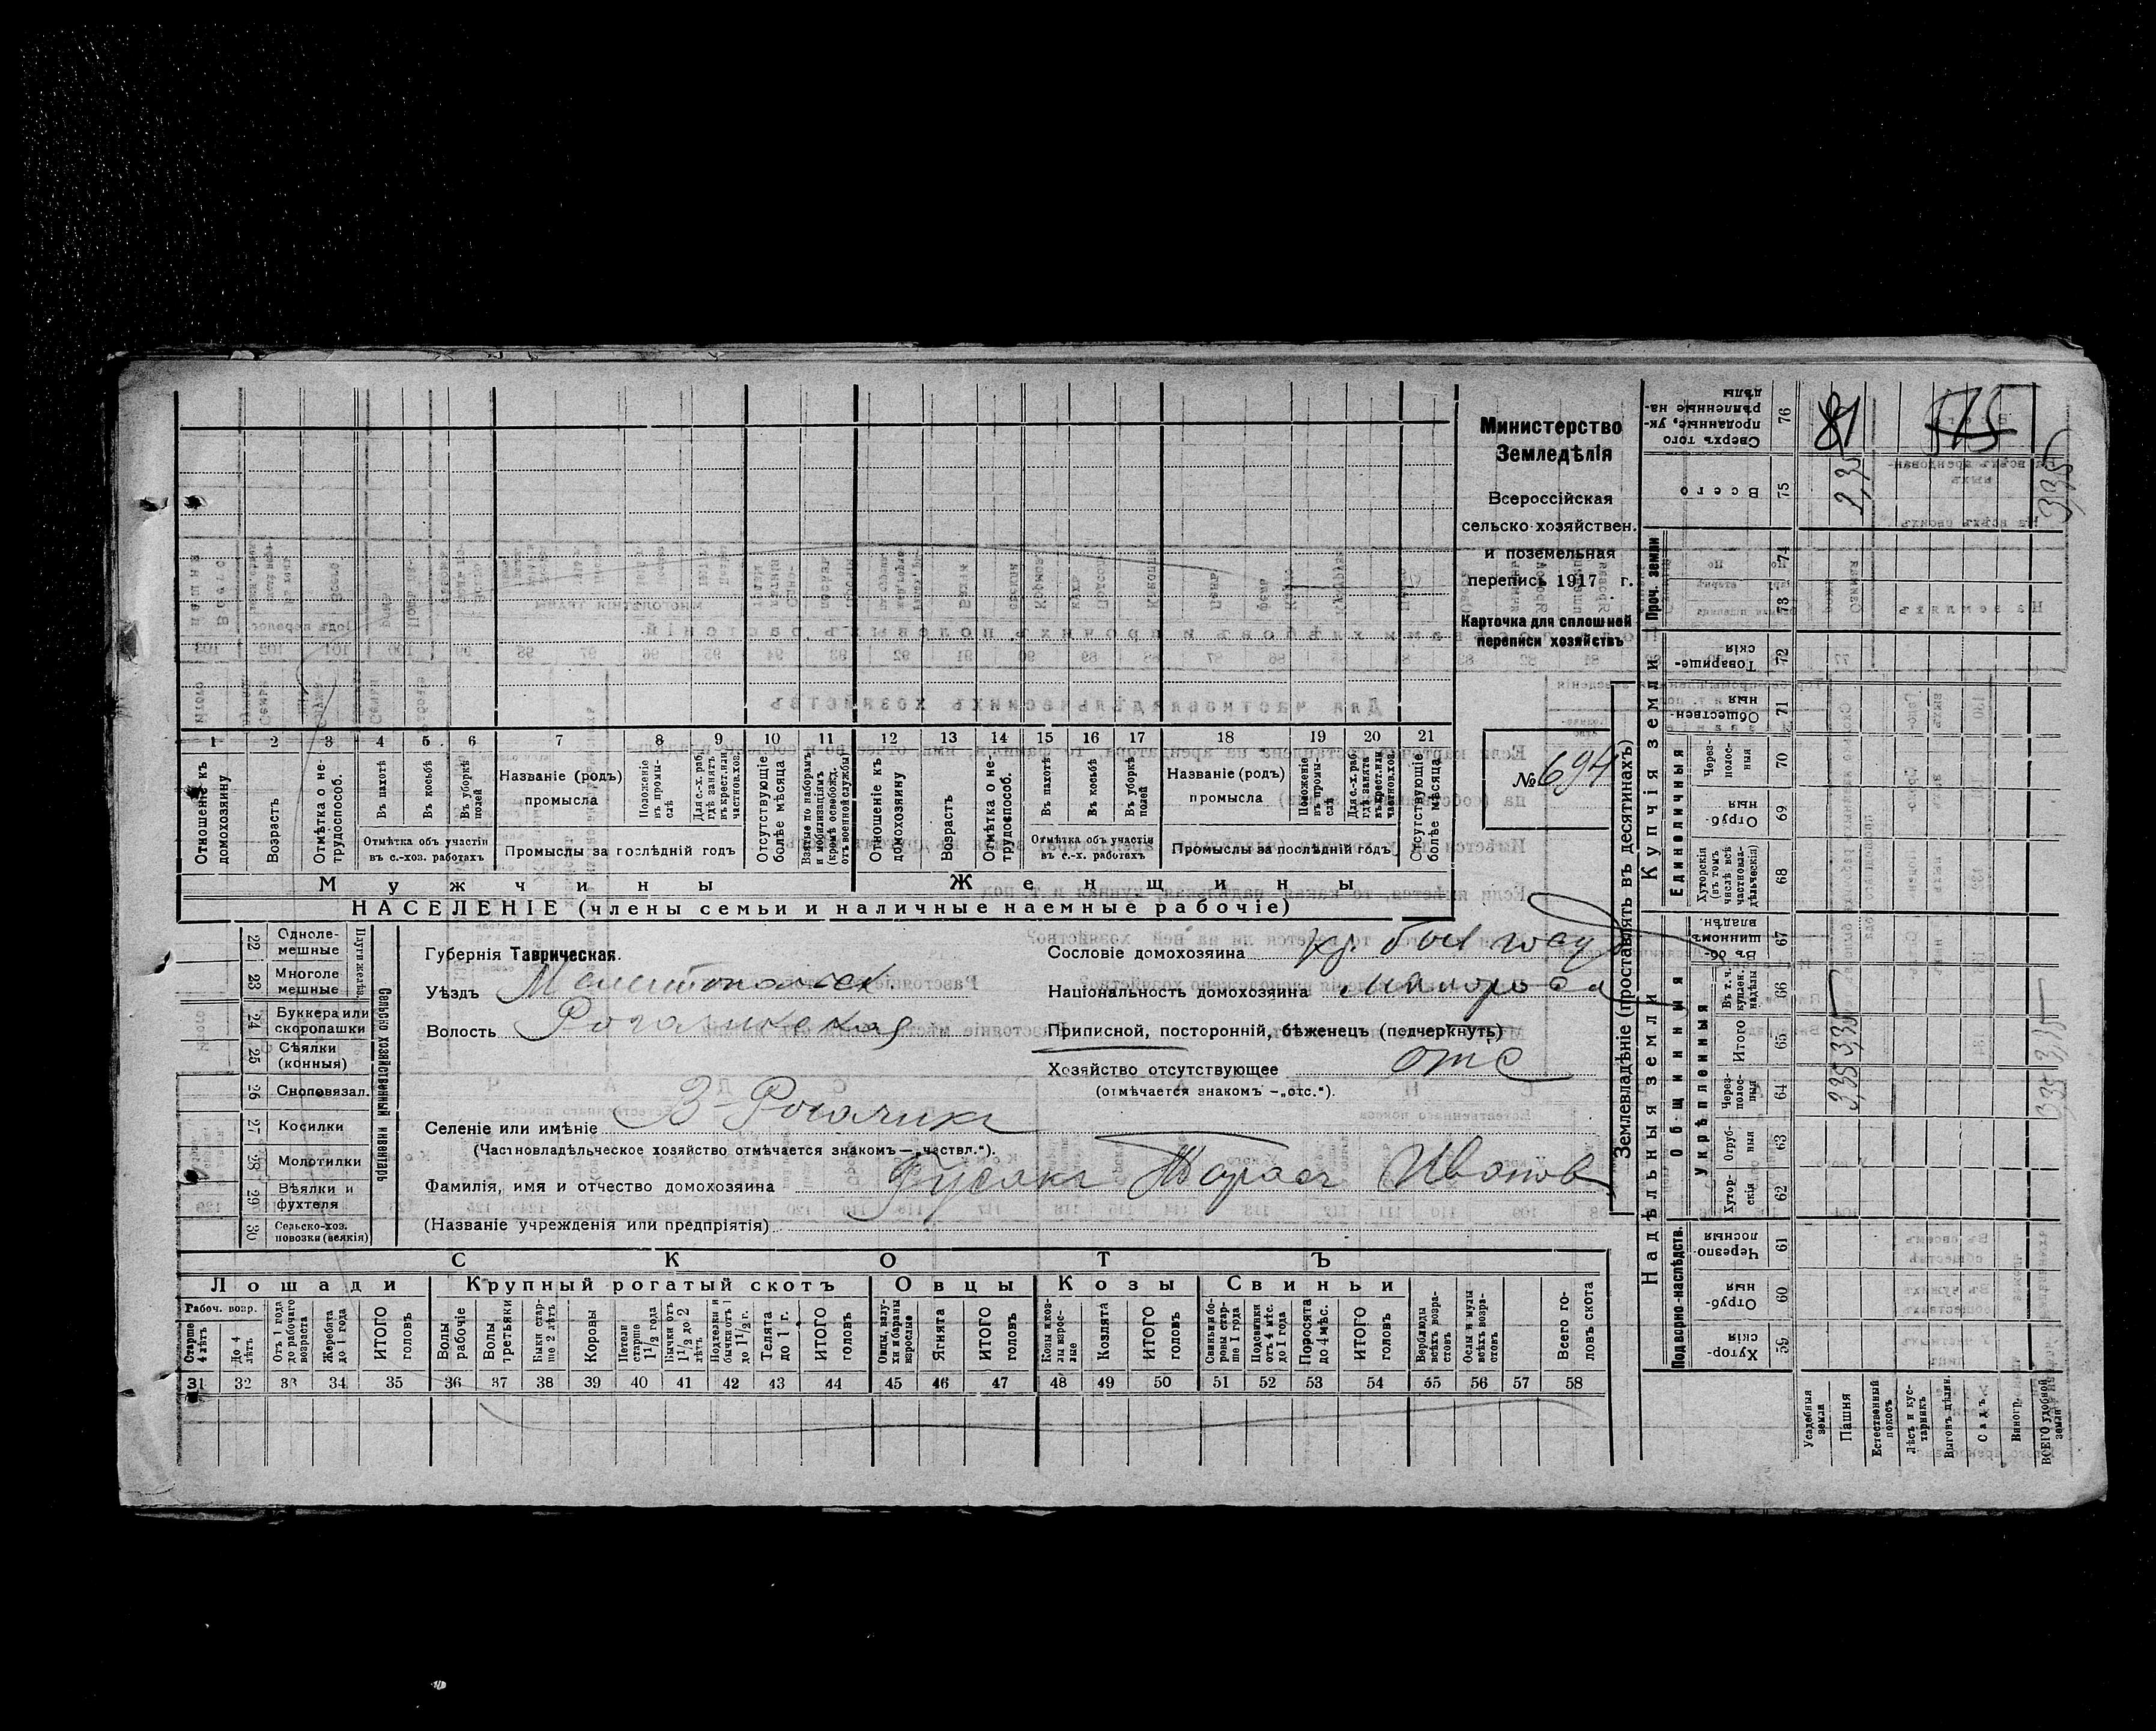 Министерство
Земледѣлія
Всероссійская
сельско-хозяйствен.
и поземельная
перепись 1917 г.
Карточка для сплошной
переписи хозяйствъ
№ 694
1 2 3 4 5 6 7 8 9 10 11 12 13 14 15 16 17 18 19 20 21
Отношеніе къ домохозяину
Возрастъ
Отмѣтка о нетрудоспособ.
Въ пахотѣ
Въ косьбѣ
Въ уборкѣ полей
Отмѣтка объ участіи
въ с.-хоз. работахъ
Названіе (родъ)
промысла
Положеніе въ промыслѣ
Для с.-х. раб. гдѣ занятъ въ крест. или частнов. хоз.
Промыслы за послѣдній годъ
Отсутствующіе болѣе мѣсяца
Взятые по наборамъ и мобилизаціямъ (кромѣ освобожд. отъ военной службы)
Отношеніе къ домохозяину
Возрастъ
Отмѣтка о нетрудоспособ.
Въ пахотѣ
Въ косьбѣ
Въ уборкѣ полей
Отмѣтка объ участіи
въ с.-х. работахъ
Названіе (родъ)
промысла
Положеніе въ промыслѣ
Для с.-х. раб. гдѣ занята въ крест. или частнов. хоз.
Промыслы за послѣдній годъ
Отсутствующіе болѣе мѣсяца
Мужчины
Женщины
НАСЕЛЕНІЕ (члены семьи и наличные наемные рабочіе)
Сельско хозяйственный инвентарь
Плуги желѣз.
22 Одноле-
мешные
23 Многоле
мешные
24 Буккера или
скоропашки
25 Сѣялки
(конныя)
26 Сноповязал.
27 Косилки
28 Молотилки
29 Вѣялки и
фухтеля
30 Сельско-хоз.
повозки (всякія)
Губернія Таврическая.
Уѣздъ Мелитопольск.
Волость Рогаликская
Сословіе домохозяина кр.
Національность домохозяина малоросс
Приписной, посторонній, бѣженецъ (подчеркнуть)
Хозяйство отсутствующее отс
(отмѣчается знакомъ —„отс.“).
Селеніе или имѣніе В-Рогаликъ
(Частновладѣльческое хозяйство отмѣчается знакомъ—„частвл.“).
Фамилія, имя и отчество домохозяина Гусакъ Тарасъ Иванов
(Названіе учрежденія или предпріятія)
СКОТЪ
Лошади
Крупный рогатый скотъ
Овцы
Козы
Свиньи
Рабоч. возр.
Старше 4 лѣтъ
До 4 лѣтъ
Отъ 1 года до рабочаго возраста
Жеребята до 1 года
ИТОГО головъ
Волы рабочіе
Волы третьяки
Быки старше 2 лѣтъ
Коровы
Нетели старше 1 1/2 года
Бычки отъ 1 1/2 до 2 лѣтъ
Подтелки и бычки отъ 1 до 1 1/2 г.
Телята до 1 г.
ИТОГО головъ
Овцы, валухи и бараны взрослые
Ягнята
ИТОГО головъ
Козы и козлы взрослые
Козлята
ИТОГО головъ
Свиньи и боровы старше 1 года
Подсвинки отъ 4 мѣс. до 1 года
Поросята до 4 мѣс.
ИТОГО головъ
Верблюды всѣхъ возрастовъ
Ослы и мулы всѣхъ возрастовъ
Всего головъ скота
31 32 33 34 35 36 37 38 39 40 41 42 43 44 45 46 47 48 49 50 51 52 53 54 55 56 57 58
Землевладѣніе (проставлять въ десятинахъ)
Надѣльныя земли
Купчія земли
Проч. земли
Подворно-наслѣдств.
Общинныя
Укрѣпленныя
Единоличныя
59 Хуторскія
60 Отрубныя
61 Черезполосныя
62 Хуторскія
63 Отрубныя
64 Черезполосныя
65 Итого
66 Въ т. ч. куплен. надѣлы
67 Въ общинномъ владѣн.
68 Хуторскія (въ томъ числѣ всѣ частновладѣльческія)
69 Отрубныя
70 Черезполосныя
71 Общественныя
72 Товарищескія
73
74
75 Всего
76 Сверхъ того проданные, укрѣпленные надѣлы
81
515
3,35
3,35
3,35
Усадебныя земли
Пашня
Естественный покосъ
Лѣсъ и кустарникъ
Выгонъ цѣлин.
Садъ
Виногр.
ВСЕГО удобной земли